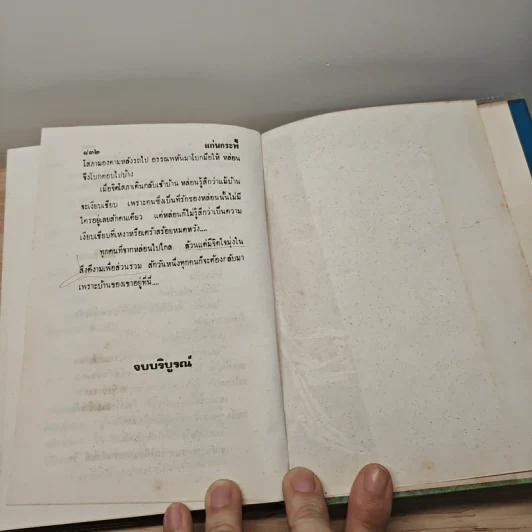 ๘๓๒ แก่นกระพี้
โสภามองตามหลังรถไป อรรณพหันมาโบกมือให้ หล่อน
จึงโบกตอบไปบ้าง
เมื่อจิตโสภาเดินกลับเข้าบ้าน หล่อนรู้สึกว่าแม้บ้าน
จะเงียบเชียบ เพราะคนซึ่งเป็นที่รักของหล่อนนั้นไม่มี
ใครอยู่เลยสักคนเดียว แต่หล่อนก็ไม่รู้สึกว่าเป็นความ
เงียบเชียบที่เหงาหรือเศร้าสร้อยหมดหวัง....
ทุกคนที่จากหล่อนไปไกล ล้วนแต่มีจิตใจมุ่งใน
สิ่งดีงามเพื่อส่วนรวม สักวันหนึ่งทุกคนก็จะต้องกลับมา
เพราะบ้านของเขาอยู่ที่นี่....
จบบริบูรณ์